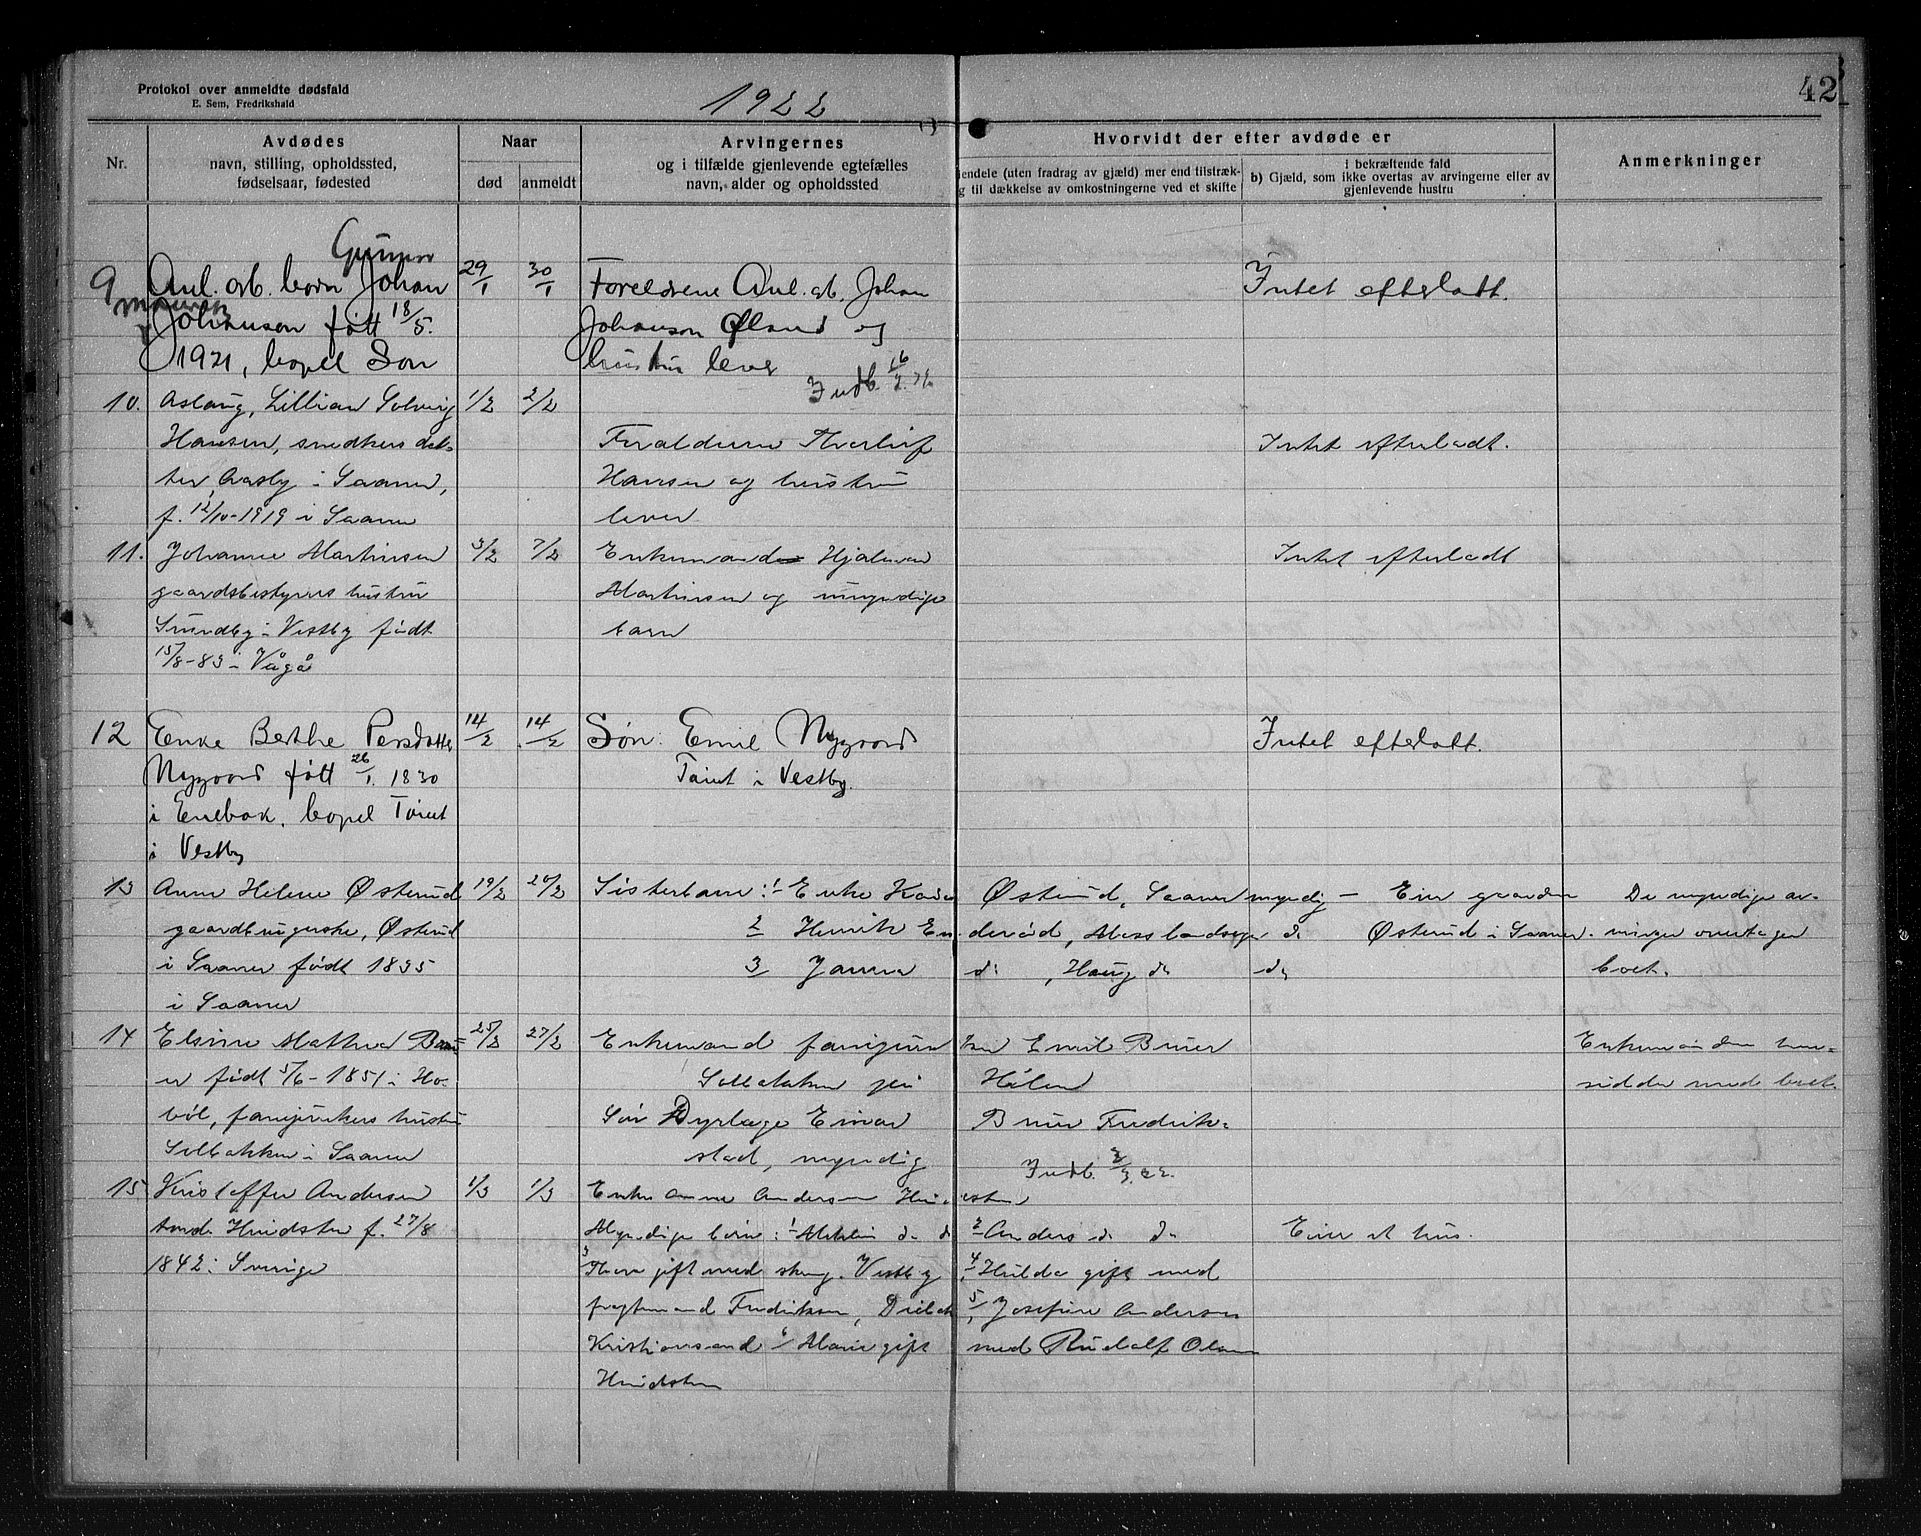 42
Protokol over anmeldte dødsfald
E. Sem, Fredrikshald
1922
Nr.
Avdødes
navn, stilling, opholdssted,
fødselsaar, fødested
Naar
død
anmeldt
Arvingernes
og i tilfælde gjenlevende egtefælles
navn, alder og opholdssted
Hvorvidt der efter avdøde er
iendele (uten fradrag av gjæld) mer end tilstræk-
g til dækkelse av omkostningerne ved et skifte
i bekræftende fald
b) Gjæld, som ikke overtas av arvingerne eller av
gjenlevende hustru
Anmerkninger
Gunnar
9 Anl. arb. barn Johan 29/1 30/1 Foreldrene Anl. arb. Johan Intet efterlatt.
Johansen født 18/5. Johanson Øland og
1921, bopel Son hustru lever
Indb. 16/2.22
10. Aslaug, Lillian Solveig 1/2 2/2
Hansen, snedkers dat- Forælderne Thorleif Intet efterladt.
ter, Aasby i Saaner, Hansen og hustru
f. 12/10-1919 i Saaner lever
11. Johanne Martinsen 3/2 7/2 Enkemand Hjalmar Intet efterladt
gaardsbestyrers hustru Martinsen og umyndige
Sundby i Vestby født barn
15/8-83 i Vågå
12 Enke Berthe Persdatter 14/2 14/2 Søn: Emil Nygaard Intet efterlatt.
Nygaard født 26/1. 1830 Taint i Vestby.
i Enebak, bopel Taint
i Vestby
13 Anne Helene Østerud 19/2 20/2 Søsterbarn: 1 Enke Østerud, Saaner myndig - Eier gaarden De myndige ar-
gaardbrugerske, Østerud 2 Henrik En- derød, do Østerud i Saaner. vinger overtager
i Saaner født 1835 3 Janna do, Haug do do boet.
i Saaner
14 Elsine Mathea Bruu- 25/2 27/2 Enkemand farvejunker Emil Bruer Enkemanden hen-
er født 5/6-1851 i Ho- Solbakken på Hølen sidder med boet.
bøl, hustru Søn Dyrlæge Einar Bruer Fredrik-
Solbakken i Saaner stad, myndig Indb. 2/3.22.
15. Kristoffer Andersen 1/3 1/3 Enke Anne Andersen
f. 27/8 Myndige børn: 1 do do 2 Anders do do Eier et hus.
1842 i Sverige 3 Thora gift med Vestby 4, Hulda gift med
fragtemand Fredriksen, 5, Josefine Andersen
Kristiansand 6 Marie gift med Rudolf Olsen